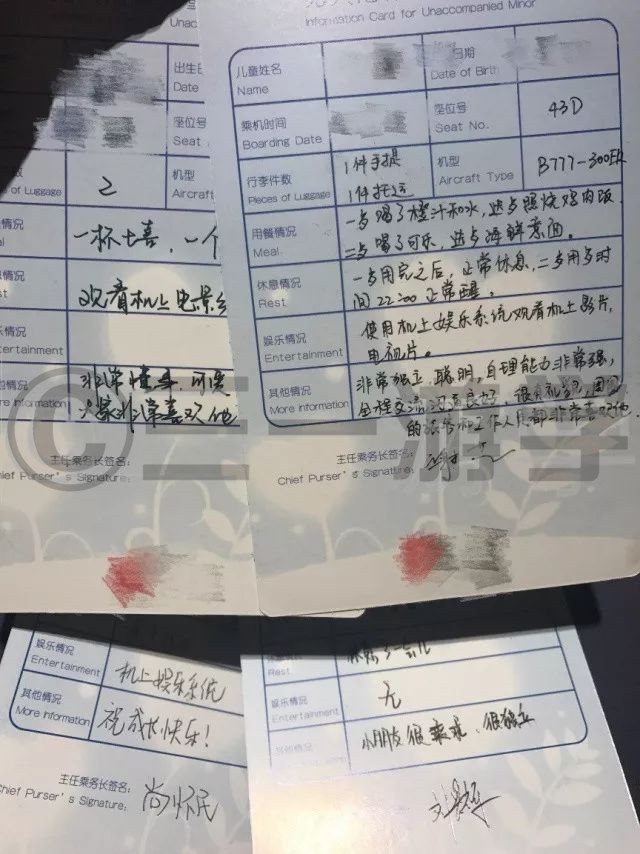 Information Card for Unaccompanied Minor
儿童姓名
Name
日期
Date of Birth
乘机时间
Boarding Date
座位号
Seat No.
43D
行李件数
Pieces of Luggage
1件手提
1件托运
机型
Aircraft Type
B777-300ER
用餐情况
Meal
一步喝了橙汁和水,选点照烧鸡肉饭
二步喝了可乐,选点海鲜意面。
休息情况
Rest
一步用完之后,正常休息,二步用步时
间22:00正常醒。
娱乐情况
Entertainment
使用机上娱乐系统观看机上影片,
电视片。
其他情况
More information
非常独立,聪明,自理能力非常强,
全程交流沟通良好。很有礼貌,
的和工作人员都非常喜欢他
主任乘务长签名:
Chief Purser's Signature:
Unac
出生日
Date
座位号
Seat
of Luggage
2
机型
Aircraft
情况
一杯七喜,一个
息情况
观看机上电影
乐情况
Entertainment
其他情况
More information
非常懂事,可爱
非常喜欢他
主任乘务长签名:
Chief Purser's Signature:
©三一游学
娱乐情况
Entertainment
机上娱乐系统
其他情况
More information
祝成长快乐!
主任乘务长签名:
Chief Purser's Signature:
尚怀民
Rest
休息了一会儿
娱乐情况
Entertainment
无
小朋友很乖,很独立